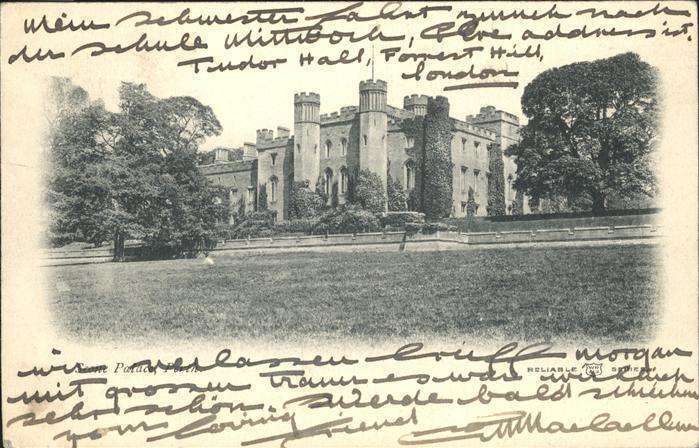 Mein schwester fahrt zurück nach
der schule Mittwoch, Ihre address ist,
Tudor Hall, Forrest Hill,
London
Scone Palace, Perth.
RELIABLE SERIES
wir verlassen Crieff morgan
mit grossen traur es war wirklich
sehr schön. Werde bald schreiben
your loving friend